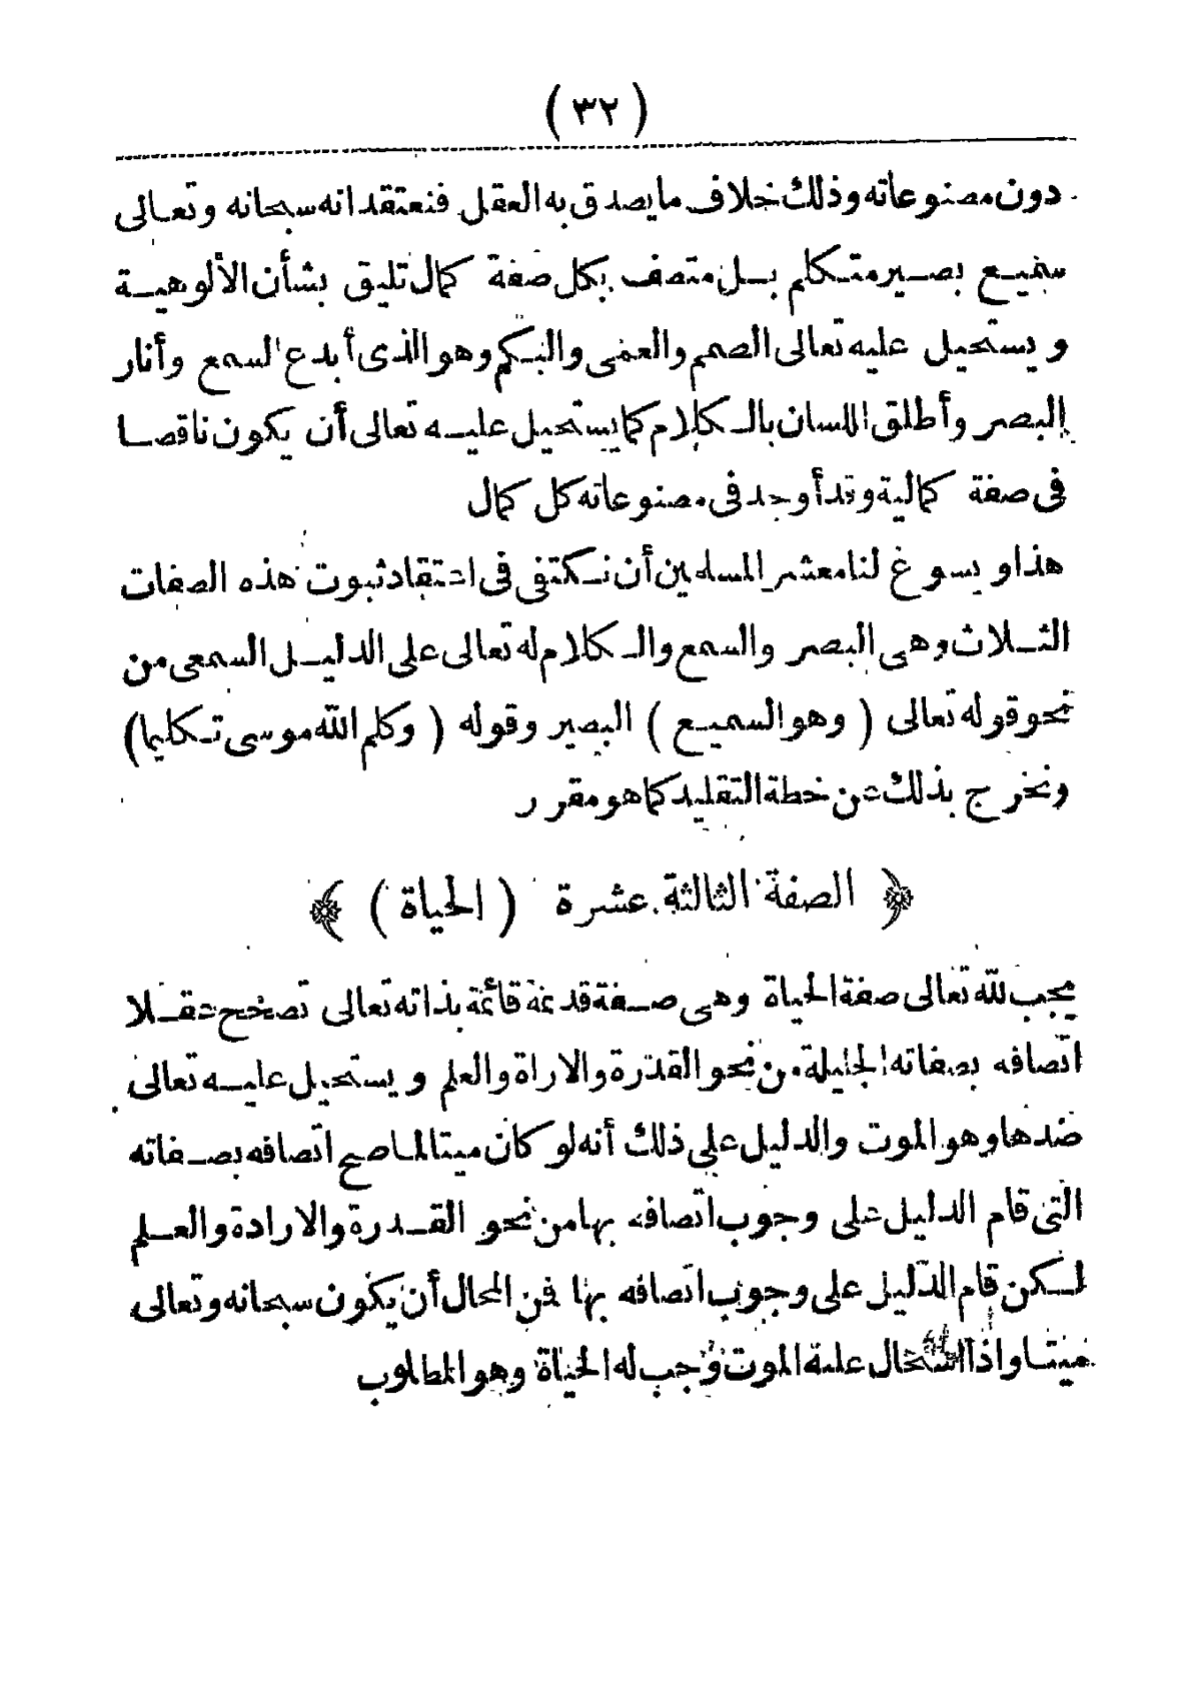 ( ٣٢ )
دون مصنوعاته وذلك خلاف ما يصدق به العقل فنعتقد انه سبحانه وتعالى
سميع بصير متكلم بل متصف بكل صفة كمال تليق بشأن الألوهية
ويستحيل عليه تعالى الصمم والعمى والبكم وهو الذى أبدع السمع وأنار
البصر وأطلق اللسان بالكلام كما يستحيل عليه تعالى أن يكون ناقصا
فى صفة كمالية وقد أوجد فى مصنوعاته كل كمال
هذا ويسوغ لنا معشر المسلمين أن نكتفى فى اعتقاد ثبوت هذه الصفات
الثلاث وهى البصر والسمع والكلام له تعالى على الدليل السمعى من
نحو قوله تعالى ( وهو السميع ) البصير وقوله ( وكلم الله موسى تكليما )
ونخرج بذلك عن خطة التقليد كما هو مقرر
﴿ الصفة الثالثة عشرة ( الحياة ) ﴾
يجب لله تعالى صفة الحياة وهى صفة قديمة قائمة بذاته تعالى تصحح عقلا
اتصافه بصفاته الجليلة من نحو القدرة والاراة والعلم ويستحيل عليه تعالى
ضدها وهو الموت والدليل على ذلك أنه لو كان ميتا لما صح اتصافه بصفاته
التى قام الدليل على وجوب اتصافه بها من نحو القدرة والارادة والعلم
لكن قام الدليل على وجوب اتصافه بها فمن المحال أن يكون سبحانه وتعالى
ميتا واذا استحال عليه الموت وجب له الحياة وهو المطلوب